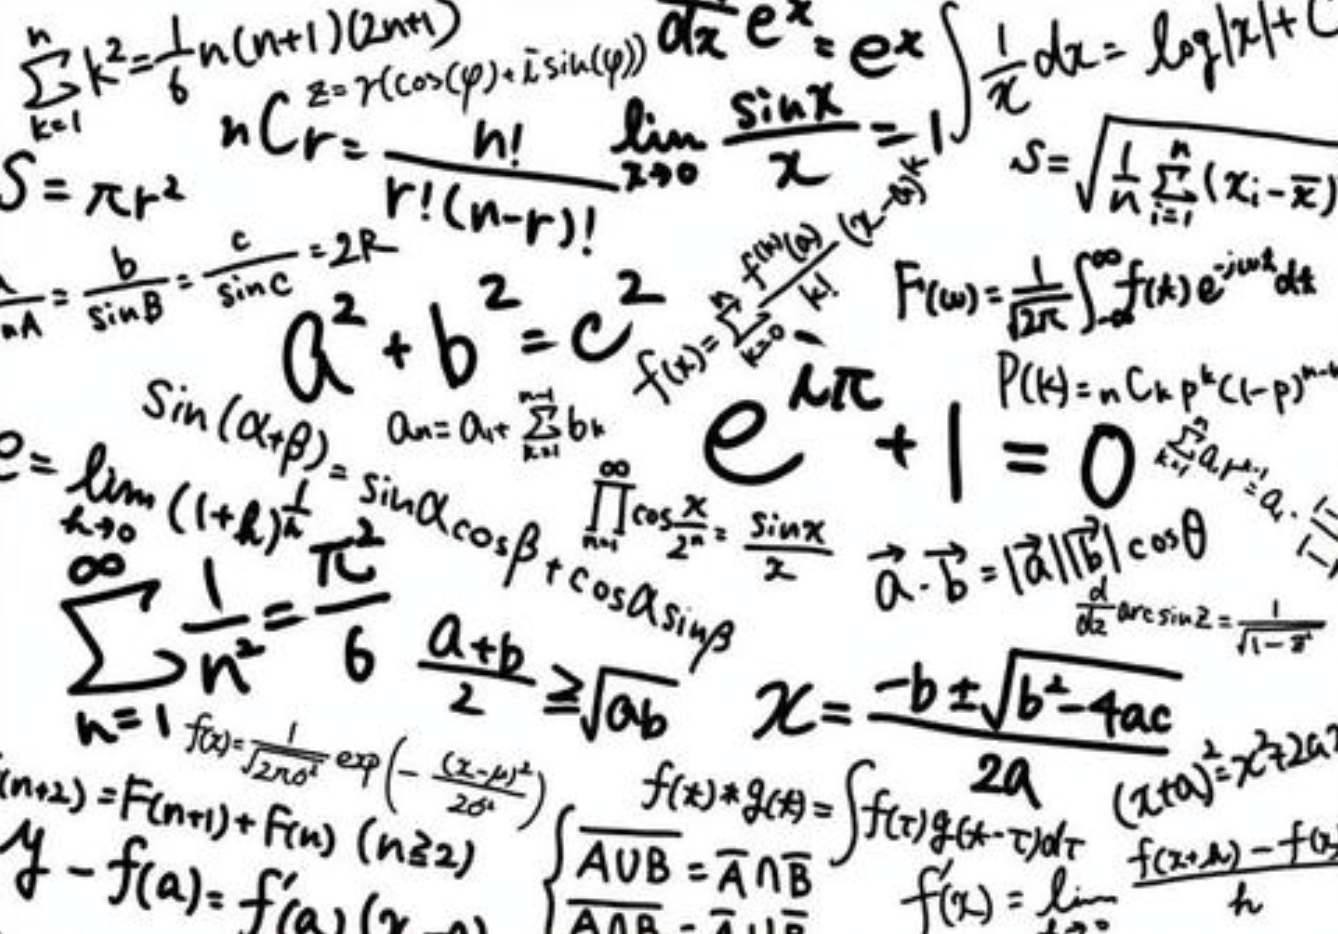 ∑_{k=1}^{n} k² = 1/6 n(n+1)(2n+1)
z = r(cos(φ) + i sin(φ))
d/dx e^x = e^x
∫ 1/x dx = log|x| + C
nCr = n! / r!(n-r)!
lim_{x→0} sinx/x = 1
S = √(1/n ∑_{i=1}^{n} (x_i - x̄)
S = πr²
sinA = b/sinB = c/sinC = 2R
f(x) = ∑_{k=0}^{n} f^{(k)}(a)/k! (x-a)^k
F(ω) = 1/√2π ∫_{-∞}^{∞} f(t) e^{-jωt} dt
a² + b² = c²
P(k) = nCk p^k (1-p)^{n-k}
sin(α+β) = sinα cosβ + cosα sinβ
a_n = a_1 + ∑_{k=1}^{n-1} b_k
e^{iπ} + 1 = 0
∑_{k=1}^{n} a_1 r^{k-1} = a_1 ·
e = lim_{h→0} (1+h)^{1/h}
∏_{n=1}^{∞} cos x/2^n = sinx/x
a⃗ · b⃗ = |a⃗||b⃗| cosθ
d/dz arcsin z = 1/√(1-z²)
∑_{n=1}^{∞} 1/n² = π²/6
(a+b)/2 ≧ √ab
x = (-b ± √(b²-4ac)) / 2a
f(x) = 1/√(2πσ²) exp(-(x-μ)²/2σ²)
(x+a)² = x² + 2a
(n+2) = F(n+1) + F(n) (n≧2)
f(t) * g(t) = ∫ f(τ) g(t-τ) dτ
y - f(a) = f'(a)(x-a)
{ \overline{A∪B} = \overline{A} ∩ \overline{B}
\overline{A∩B} = \overline{A} ∪ \overline{B}
f'(x) = lim (f(x+h) - f(x) / h